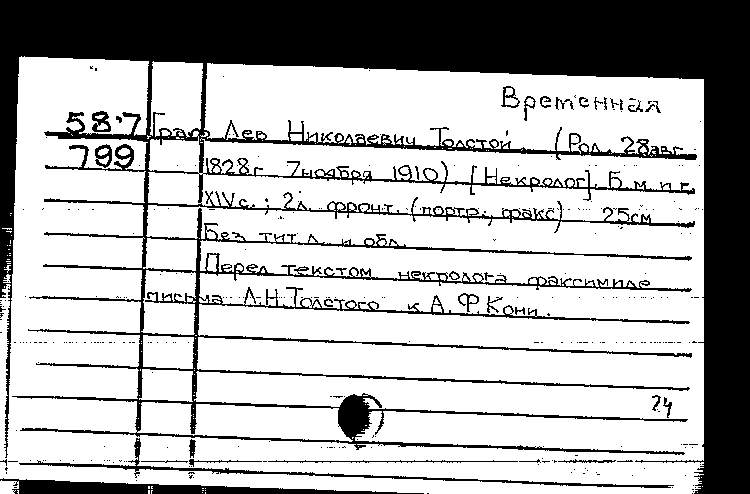 Временная
58·7 Граф Лев Николаевич Толстой. (Род. 28авг
799 1828г 7ноября 1910) [Некролог]. Б.м.и г.
XIVс.; 2л. фронт. (портр., факс) 25см
Без тит.л. и обл.
Перед текстом некролога факсимиле
письма Л.Н.Толстого к А.Ф.Кони.
24